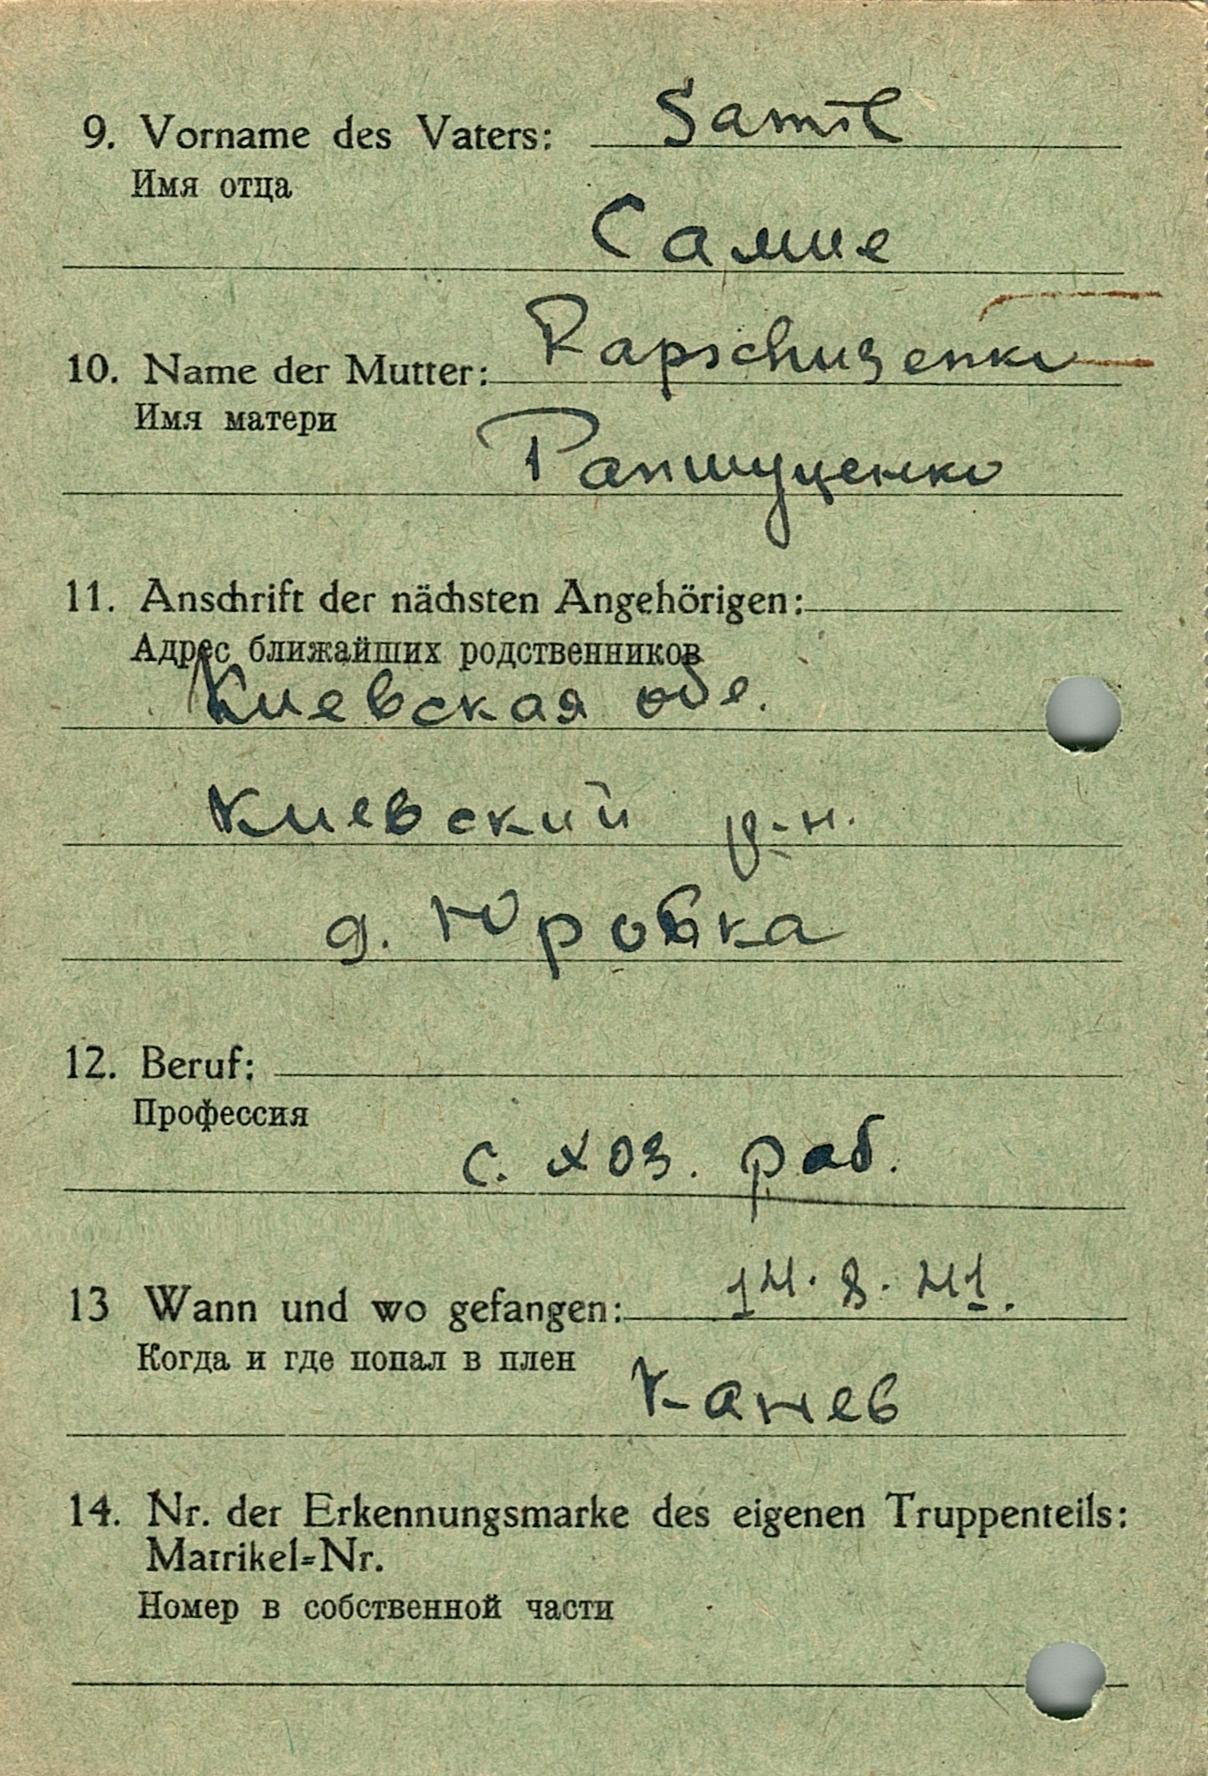 9. Vorname des Vaters: Samil
Имя отца
Самие
10. Name der Mutter: Rapschuzenko
Имя матери
Рапшуценко
11. Anschrift der nächsten Angehörigen:
Адрес ближайших родственников
Киевская обл.
Киевский р-н.
д. Юровка
12. Beruf:
Профессия
с. хоз. раб.
13 Wann und wo gefangen: 14. 8. 41.
Когда и где попал в плен
Канев
14. Nr. der Erkennungsmarke des eigenen Truppenteils:
Matrikel=Nr.
Номер в собственной части